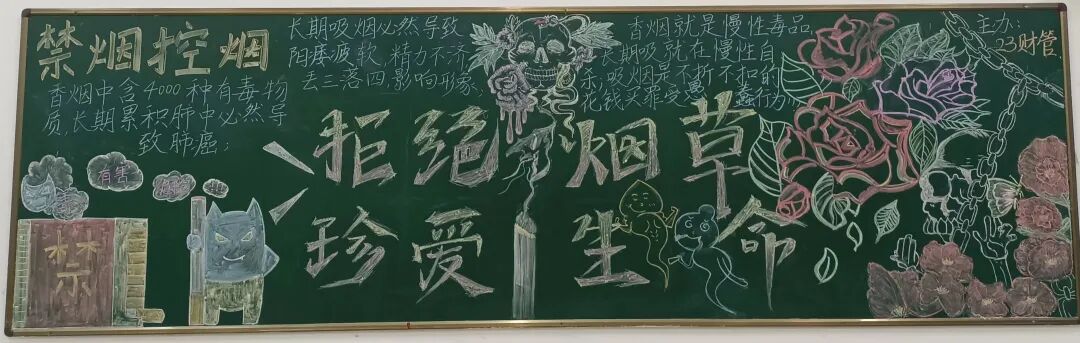 禁烟控烟
香烟中含4000种有毒物
质,长期累积肺中必然导
致肺癌;
长期吸烟必然导致
阳痿疲软,精力不济
丢三落四,影响形象
香烟就是慢性毒品,
长期吸就在慢性自
杀,吸烟是不折不扣的
花钱买罪受愚蠢行为
主办:
23财管
拒绝烟草
珍爱生命
有害
禁